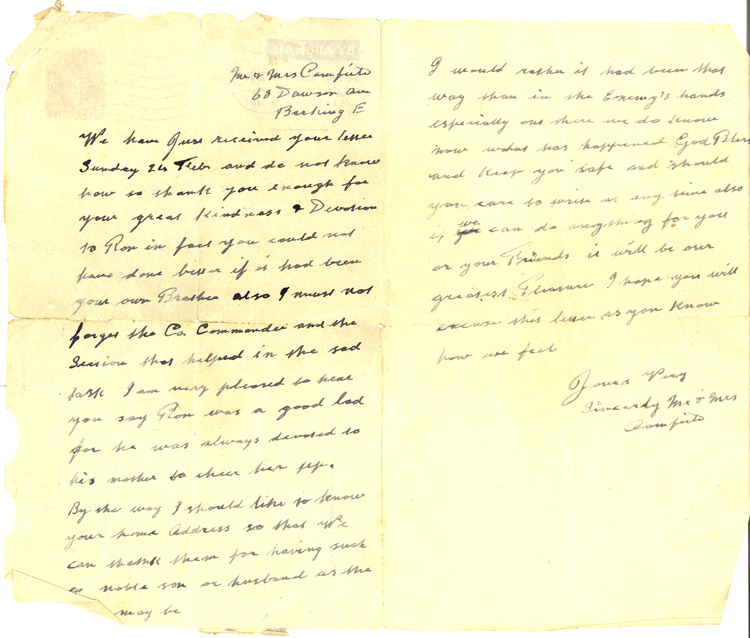 Mr & Mrs Comfirt
63 Dawson Ave
Barking E
We have Just received your letter
Sunday 24 Feb and do not know
how to thank you enough for
your great Kindness & Devotion
to Ron in fact you could not
have done better if it had been
your own Brother also I must not
forget the Co. Commander and the
Section that helped in the sad
task I am very pleased to hear
you say Ron was a good lad
for he was always devoted to
his mother to cheer her up.
By the way I should like to know
your home Address so that We
can thank them for having such
a noble son or husband as the
may be
I would rather it had been that
way than in the Enemy's hands
especially out there we do know
now what has happened God Bless
and Keep you safe and should
you care to write at any time also
if we can do anything for you
or your Friends it will be our
greatest Pleasure I hope you will
excuse this letter as you know
how we feel
Yours Very
Sincerely Mr & Mrs